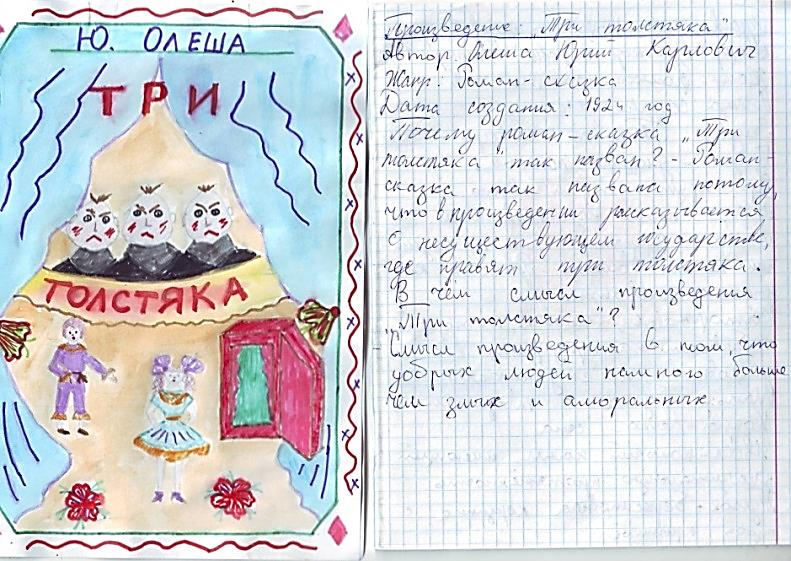 Ю. ОЛЕША
ТРИ
ТОЛСТЯКА
Произведение: „Три толстяка"
Автор: Олеша Юрий Карлович
Жанр: Роман-сказка
Дата создания: 1924 год
Почему роман-сказка „Три
толстяка" так назван? - Роман-
сказка так назвали потому,
что в произведении рассказывается
о несуществующем государстве,
где правят три толстяка.
В чём смысл произведения
„Три толстяка"?
- Смысл произведения в том, что
добрых людей намного больше
чем злых и аморальных